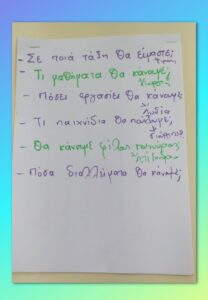 - Σε ποιά τάξη θα είμαστε;
- Τι μαθήματα θα κάνουμε;
- Πόσες εργασίες θα κάνουμε;
Λυδία
- Τι παιχνίδια θα παίξουμε;
- Θα κάνουμε φίλους καινούριους;
- Πόσα διαλλείματα θα κάνουμε;